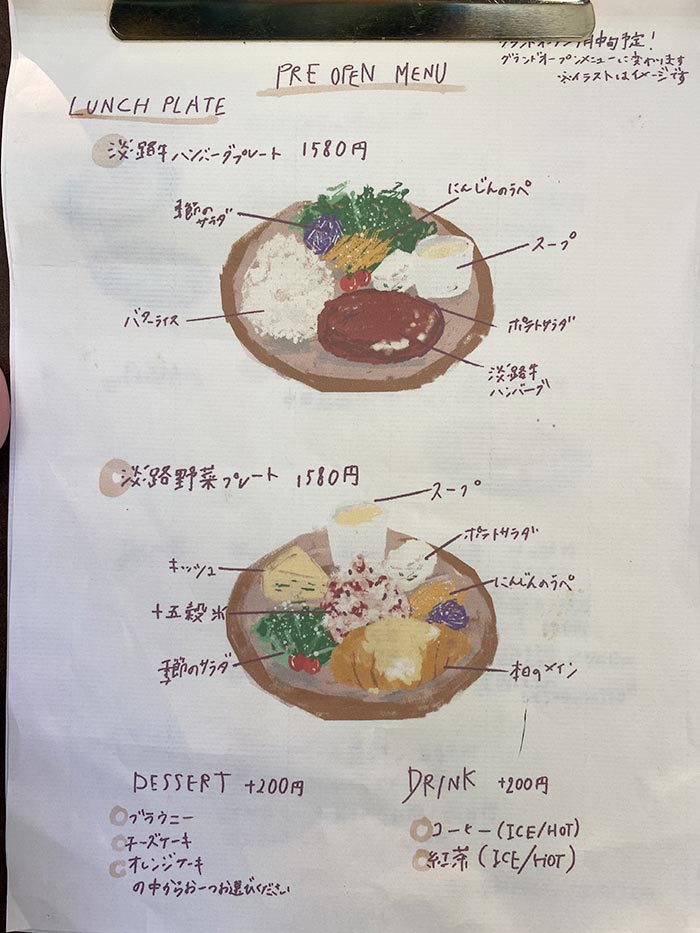 グランドオープン 月中旬予定!
グランドオープンメニューに変わります
※イラストはイメージです
PRE OPEN MENU
LUNCH PLATE
淡路牛ハンバーグプレート 1580円
季節の
サラダ
にんじんのラペ
スープ
バターライス
ポテトサラダ
淡路牛
ハンバーグ
淡路野菜プレート 1580円
スープ
ポテトサラダ
キッシュ
にんじんのラペ
十五穀米
季節のサラダ
本日のメイン
DESSERT +200円
ブラウニー
チーズケーキ
オレンジケーキ
の中からお一つお選びください
DRINK +200円
コーヒー (ICE/HOT)
紅茶 (ICE/HOT)